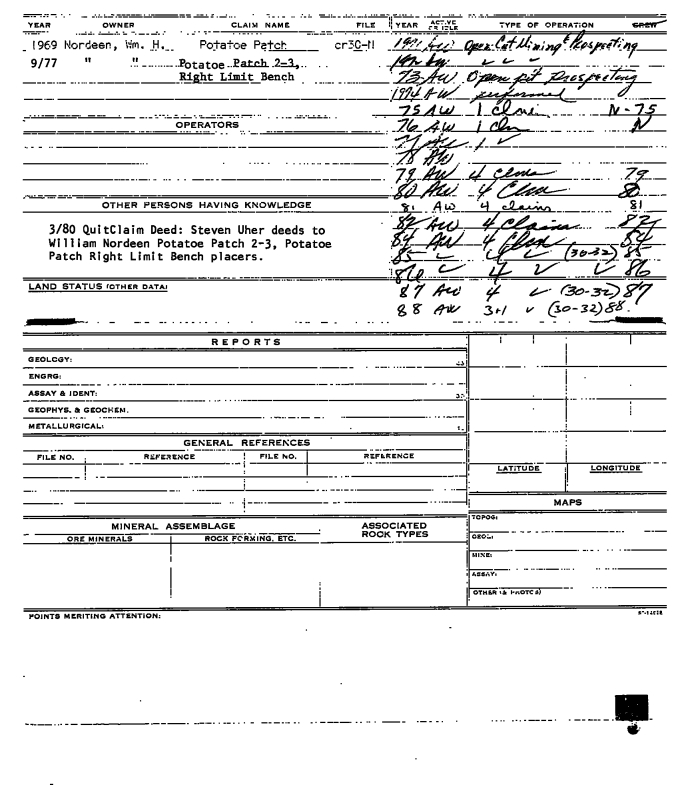 YEAR OWNER CLAIM NAME FILE YEAR ACTIVE OR IDLE TYPE OF OPERATION CREW
1969 Nordeen, Wm. H. Potatoe Patch cr30-11 1971 AW Open Cut Mining & Prospecting
9/77 " " Potatoe Patch 2-3, 1972
Right Limit Bench 73 AW Open pit Prospecting
1974 AW performed
75 AW 1 claim N-75
OPERATORS 76 AW 1 clm N
1 ✓
78 AW
79 AW 4 Clms 79
80 AW 4 Clms 80
OTHER PERSONS HAVING KNOWLEDGE 81 AW 4 claims 81
82 AW 4 Claims 82
3/80 QuitClaim Deed: Steven Uher deeds to 84 AW 4 Clms 84
William Nordeen Potatoe Patch 2-3, Potatoe 85 ✓ 4 ✓ (30-32) 85
Patch Right Limit Bench placers. 86 ✓ 4 ✓ ✓ 86
LAND STATUS (OTHER DATA) 87 AW 4 ✓ (30-32) 87
88 AW 3+1 ✓ (30-32) 88.
REPORTS
GEOLOGY:
ENGRG:
ASSAY & IDENT:
GEOPHYS. & GEOCHEM.
METALLURGICAL:
GENERAL REFERENCES
FILE NO. REFERENCE FILE NO. REFERENCE
LATITUDE LONGITUDE
MAPS
TOPOG:
MINERAL ASSEMBLAGE ASSOCIATED ROCK TYPES
ORE MINERALS ROCK FORMING, ETC. GEOL:
MINE:
ASSAY:
OTHER (& PHOTOS)
POINTS MERITING ATTENTION: